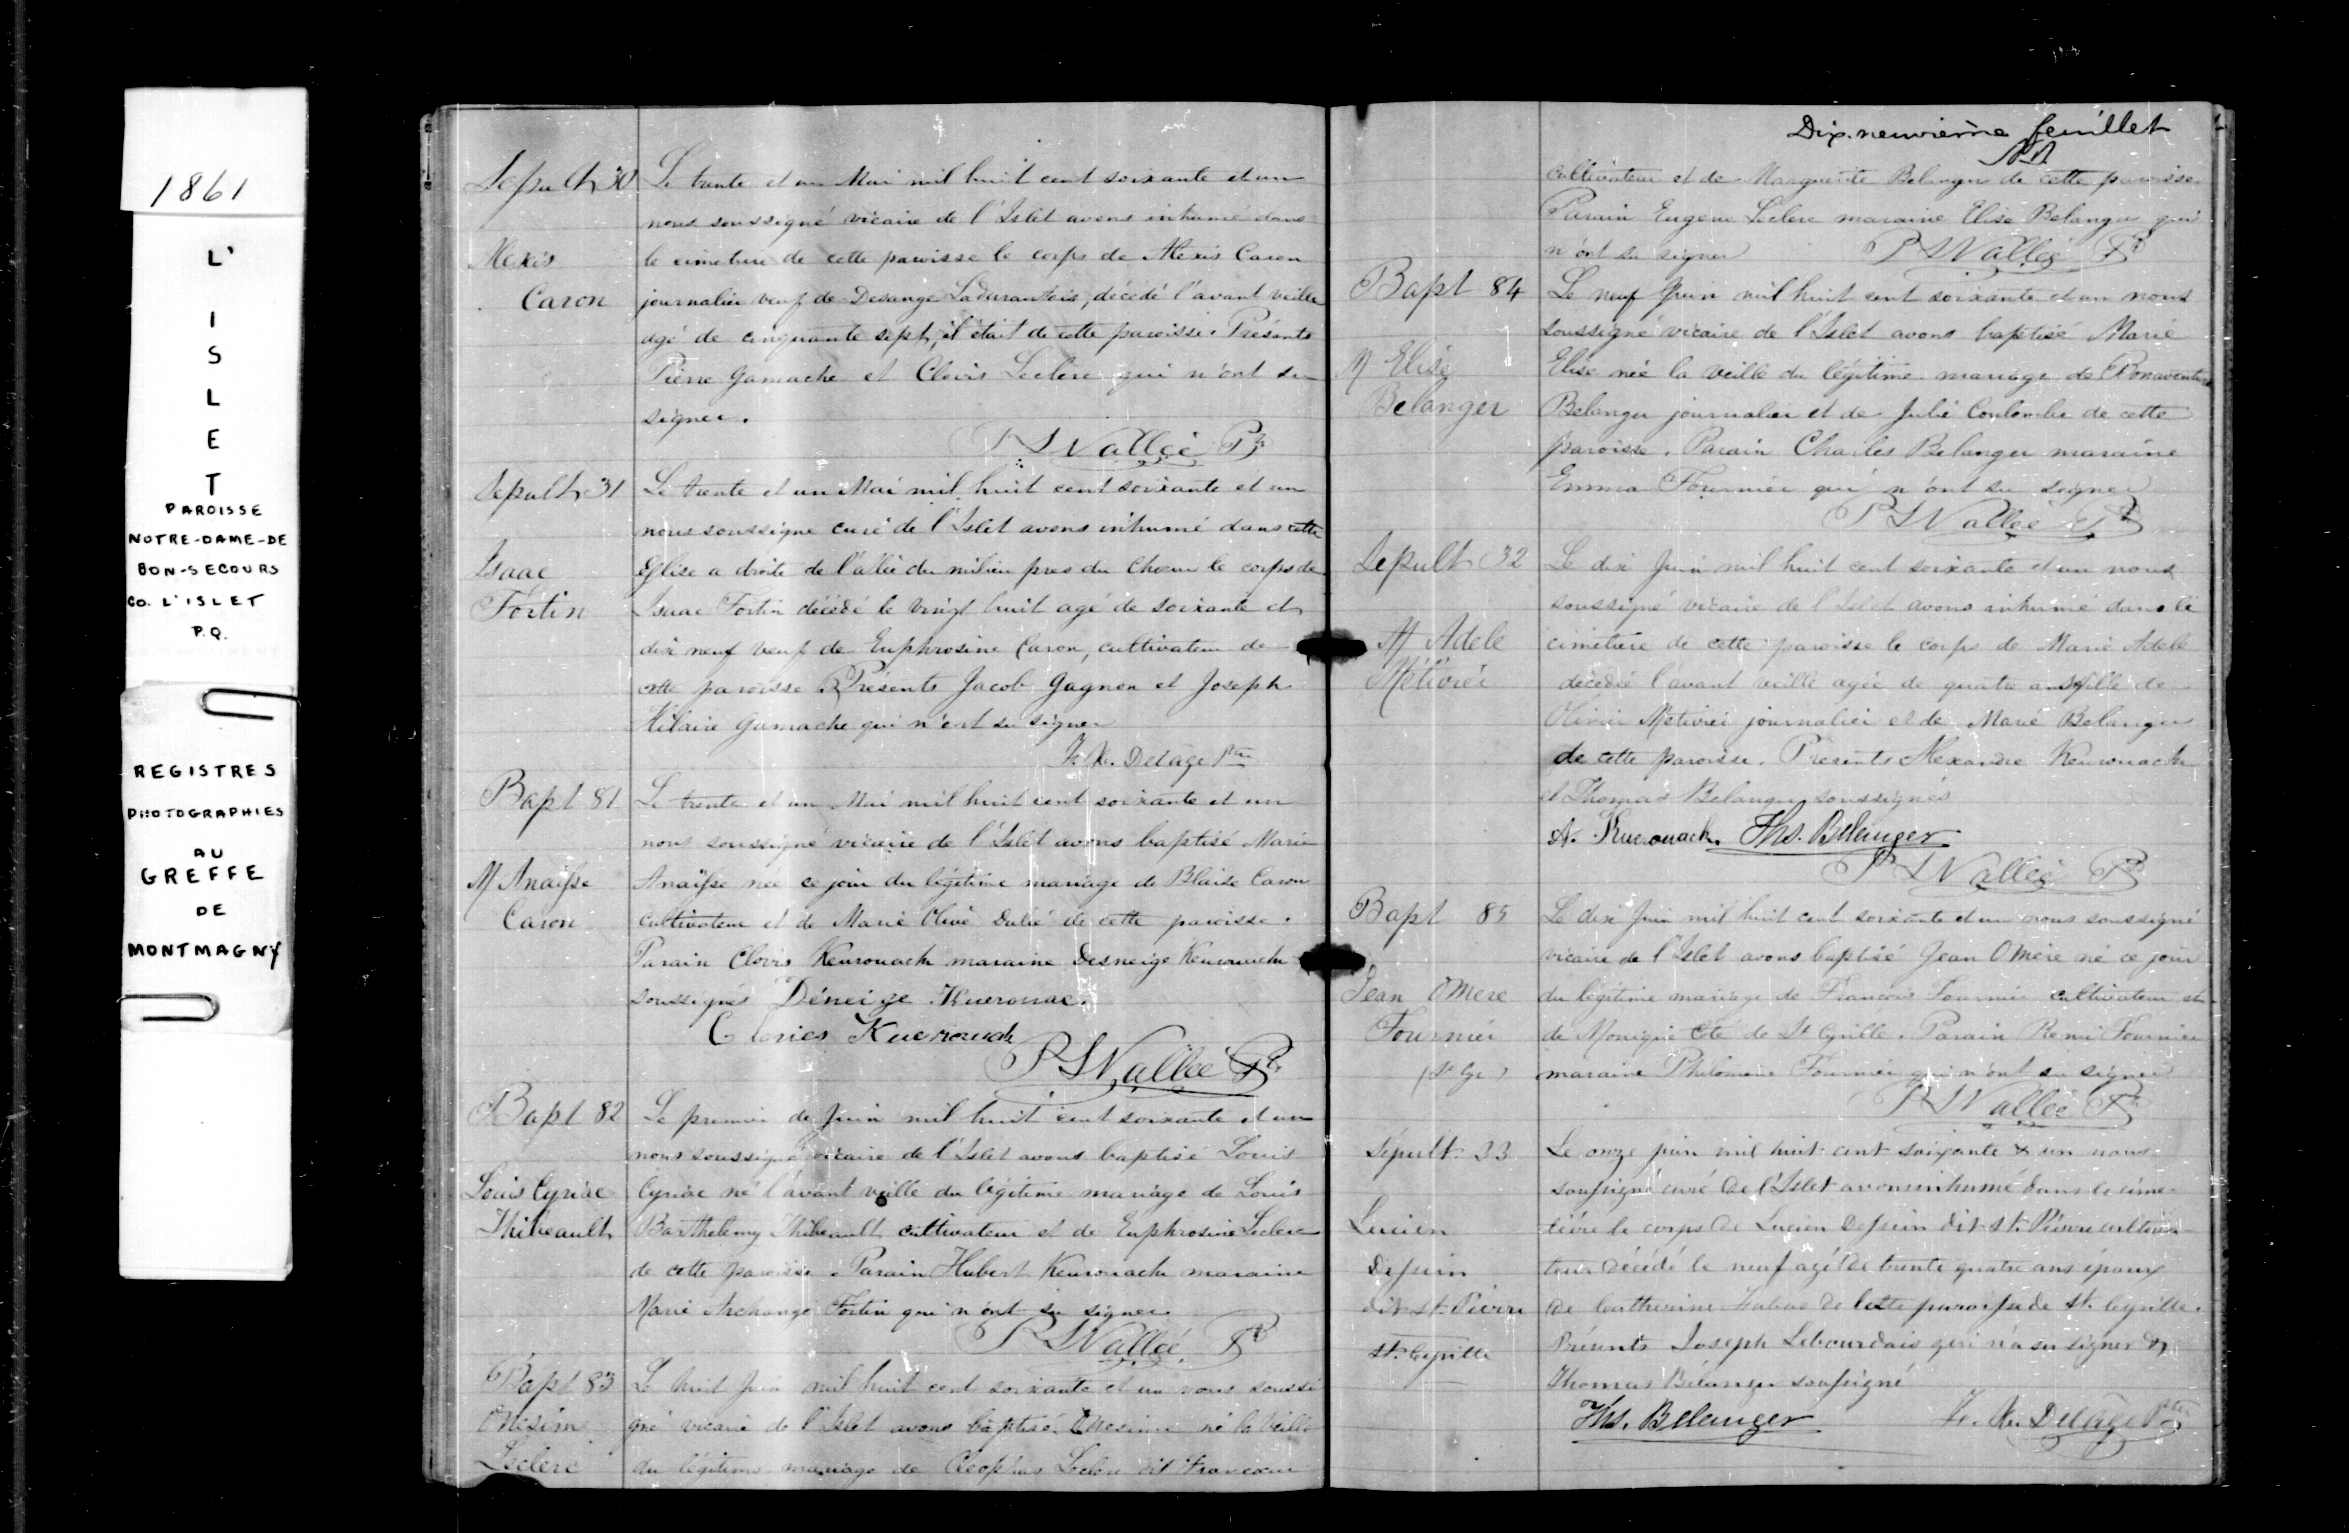 1861
L'
I
S
L
E
T
PAROISSE
NOTRE-DAME-DE
BON-SECOURS
CO. L'ISLET
P.Q.
REGISTRES
PHOTOGRAPHIES
AU
GREFFE
DE
MONTMAGNY
Sepult 30
Alexis
Caron
Le trente et un Mai mil huit cent soixante et un
nous soussigné vicaire de l'Islet avons inhumé dans
le cimetiere de cette paroisse le corps de Alexis Caron
journalier veuf de Desange Ladurantais, décédé l'avant veille
agé de cinquante sept, il était de cette paroisse. Présents
Pierre Gamache et Clovis Leclerc qui n'ont su
signer.
P S Vallée Ptr
Sepult 31
Isaac
Fortin
Le trente et un Mai mil huit cent soixante et un
nous soussigné curé de l'Islet avons inhumé dans cette
Eglise a droite de l'allée du milieu pres du Choeur le corps de
Isaac Fortin décédé le vingt huit agé de soixante et
dix neuf veuf de Euphrosine Caron, cultivateur de
cette paroisse Présents Jacob Gagnon et Joseph
Hilaire Gamache qui n'ont su signer
F. X. Delage Ptre
Bapt 81
M Anaïsse
Caron
Le trente et un Mai mil huit cent soixante et un
nous soussigné vicaire de l'Islet avons baptisé Marie
Anaïsse née ce jour du légitime mariage de Blaise Caron
cultivateur et de Marie Olive Dubé de cette paroisse.
Parain Clovis Keurouack maraine Desneige Keurouack
soussignés Déneige Kuerouac.
Clovies Kuerouack
P S Vallée Ptr
Bapt 82
Louis Cyriac
Thibeault
Le premier de Juin mil huit cent soixante et un
nous soussigné vicaire de l'Islet avons baptisé Louis
Cyriac né l'avant veille du légitime mariage de Louis
Barthelemy Thibeault cultivateur et de Euphrosine Leclerc
de cette paroisse. Parain Hubert Keurouack maraine
Marie Archange Fortin qui n'ont su signer
P S Vallée Ptr
Bapt 83
Onesime
Leclerc
Le huit Juin mil huit cent soixante et un nous soussi
gné vicaire de l'Islet avons baptisé Onesime né la veille
du légitime mariage de Cleophas Leclerc dit Francoeur
Dix-neuvième feuillet
cultivateur et de Marguerite Belanger de cette paroisse
Parain Eugene Leclerc maraine Elise Belanger qui
n'ont su signer P S Vallée Ptr
Bapt 84
M Elise
Belanger
Le neuf Juin mil huit cent soixante et un nous
soussigné vicaire de l'Islet avons baptisé Marie
Elise née la veille du légitime mariage de Bonaventure
Belanger journalier et de Julie Coulombe de cette
paroisse. Parain Charles Belanger maraine
Emma Fournier qui n'ont su signer
P S Vallée Ptr
Sepult 32
M Adele
Métivier
Le dix Juin mil huit cent soixante et un nous
soussigné vicaire de l'Islet avons inhumé dans le
cimetiere de cette paroisse le corps de Marie Adele
decedée l'avant veille agée de quatre ans fille de
Olivier Metivier journalier et de Marie Belanger
de cette paroisse. Présents Alexandre Keurouack
et Thomas Belanger soussignés
A. Kuerouack. Ths. Bélanger
P S Vallée Ptr
Bapt 85
Jean Omere
Fournier
(St Cyr)
Le dix Juin mil huit cent soixante et un nous soussigné
vicaire de l'Islet avons baptisé Jean Omere né ce jour
du légitime mariage de François Fournier cultivateur et
de Monique Coté de St Cyrille. Parain Remi Fournier
maraine Philomene Fournier qui n'ont su signer
P S Vallée Ptr
Sépult. 33
Lucien
Dessein
dit St. Pierre
St. Cyrille
Le onze juin mil huit cent soixante & un nous
soussigné curé de l'Islet avons inhumé dans le cime-
tière le corps de Lucien Dessein dit St. Pierre cultiva-
teur décédé le neuf agé de trente quatre ans époux
de Catherine de cette paroisse de St. Cyrille.
Présents Joseph Lebourdais qui n'a su signer &
Thomas Bélanger soussigné
Ths. Bélanger F. X. Delage Ptre